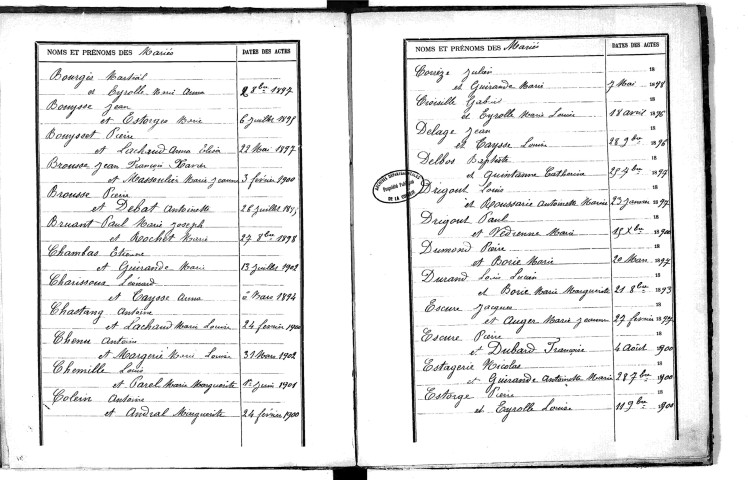 NOMS ET PRÉNOMS DES Mariés DATES DES ACTES
Bourgès Martial
et Eyrolle Marie Anna 2 8bre 1897
Bouysse Jean
et Estorges Marie 6 juillet 1895
Bouyssot Pierre
et Lachaud Anna Elisa 22 Mai 1897
Brousse Jean François Xavier
et Massoulier Marie Jeanne 3 février 1900
Brousse Pierre
et Debat Antoinette 26 juillet
Bruant Paul Marie Joseph
et Rochet Marie 27 8bre 1898
Chambas Etienne
et Guirande Marie 13 juillet 1902
Charissous Léonard
et Caysse Anna Mars 1894
Chastang Antoine
et Lachaud Marie Louise 24 février 1900
Chenu Antoine
et Margerie Marie Louise 31 Mars 1902
Chemille Louis
et Parel Marie Marguerite 1er juin 1901
Colein Antoine
et Andral Marguerite 24 février 1900
NOMS ET PRÉNOMS DES Mariés DATES DES ACTES
18
Couèze Julien
et Guirande Marie 7 Mai 1898
18
Croisille Gabriel
et Eyrolle Marie Louise 18 avril 1896
18
Delage Jean
et Caysse Louise 28 9bre 1896
18
Delbos Baptiste
et Quintanne Catherine 25 4bre 1897
18
Drigout Louis
et Roussarie Antoinette Marie 23 janvier 1897
18
Drigout Paul
et Védrenne Marie 15 Xbre 1900
18
Dumond Pierre
et Borie Marie 20 Mars 1897
18
Durand Louis Lucien
et Borie Marie Marguerite 21 8bre 1893
18
Escure Jacques
et Auger Marie Jeanne 27 février 1897
18
Escure Pierre
et Dubard Françoise 4 Août 1900
18
Estagerie Nicolas
et Guirande Antoinette Marie 28 7bre 1900
18
Estorge Pierre
et Eyrolle Louise 11 9bre 1900
ARCHIVES DÉPARTEMENTALES
Propriété Publique
DE LA CORRÈZE